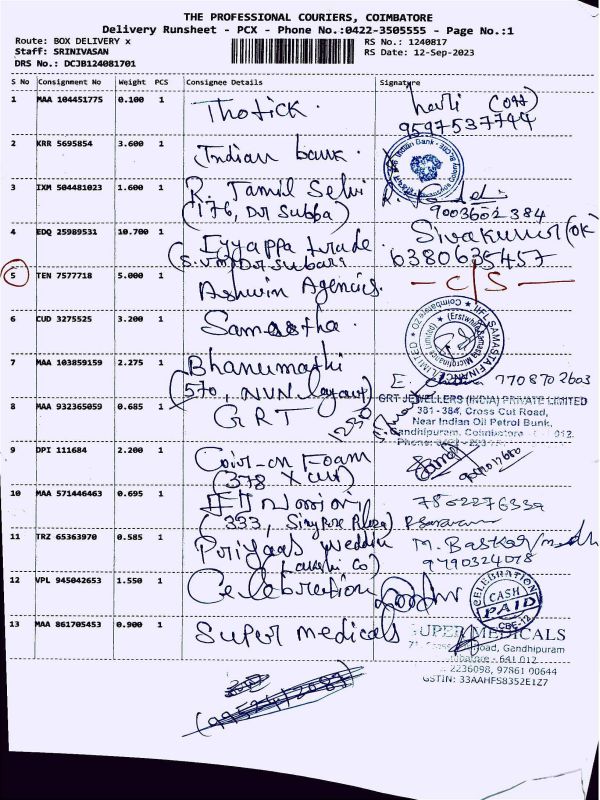 THE PROFESSIONAL COURIERS, COIMBATORE
Delivery Runsheet - PCX - Phone No.:0422-3505555 - Page No.:1
Route: BOX DELIVERY x
RS No.: 1240817
Staff: SRINIVASAN
RS Date: 12-Sep-2023
DRS No.: DCJB124081701
S No Consignment No Weight PCS Consignee Details Signature
1 MAA 104451775 0.100 1 Thotick. hari (Off)
9597537744
2 KRR 5695854 3.600 1 Indian bank. Indian Bank
3 IXM 504481023 1.600 1 R. Tamil Selvi
(176, Dr Subba) 9003602384
4 EDQ 25989531 10.700 1 Iyyappa trade. Sivakumar (OK)
(S.V.M) Dr Subari 6380635457
5 TEN 7577718 5.000 1 Ashwin Agencies. - C/S -
6 CUD 3275525 3.200 1 Samastha. IIFL SAMASTA FINANCE LIMITED
7 MAA 103859159 2.275 1 Bhanumathi
(570, NVN layout) 7708702603
8 MAA 932365059 0.685 1 GRT 1230 GRT JEWELLERS (INDIA) PRIVATE LIMITED
381 - 384, Cross Cut Road,
Near Indian Oil Petrol Bunk,
Gandhipuram, Coimbatore - 012.
Phone:
9 DPI 111684 2.200 1 Coir-on Foam
(378 X Cut)
10 MAA 571446463 0.695 1 7862276339
(333, Singpore Plaza)
11 TRZ 65363970 0.585 1 Priyaas M. Baskar
9790324078
12 VPL 945042653 1.550 1 Celebration CELEBRATION
CASH
PAID
CBE-12
13 MAA 861705453 0.900 1 Super medicals SUPER MEDICALS
Road, Gandhipuram
- 641 012
2236098, 97861 00644
GSTIN: 33AAHFS8352E1Z7